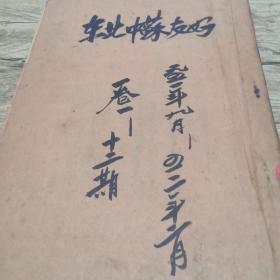 东北中苏友好
五一年九月—五二年二月
一卷一—十二期